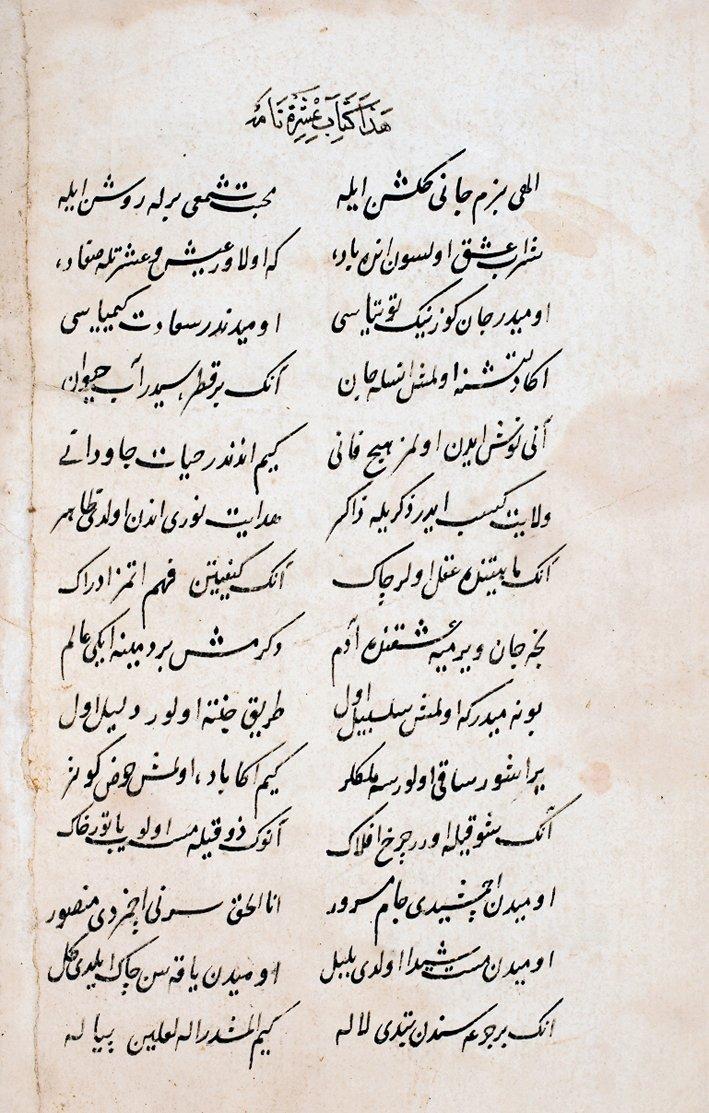 هَذَا كِتَابِ عِشْرَة نَامَه
الهی بزم جانی کلشن ایله محبت شمعی برله روشن ایله
شراب عشق اولسون انده باده که اولا ور عیش و عشرتله صفاده
او میدر جان کوزینک توتیاسی او میدندر سعادت کیمیاسی
اکا دلتشنه اولمش انسله جان آنک بر قطره سیدر آب حیوان
آنی نوش ایدن اولمز هیچ فانی کیم اندندر حیات جاودانی
ولایت کسب ایدر ذکریله ذاکر هدایت نوری اندن اولدی ظاهر
آنک ماهیتنده عقل اولر چاک آنک کیفیتن فهم اتمز ادراک
نجه جان ویرمیه عشقنده آدم دکرمش بر دمینه ایکی عالم
بو نه میدرکه اولمش سلسبیل اول طریق جنته اولور دلیل اول
یراشور ساقی اولورسه ملکلر کیم اکا باده اولمش حوض کوثر
آنک شوقیله اورر چرخ افلاک آنوک ذوقیله مست اولوب یاتور خاک
او میدن ایچشیدی جام مسرور انا الحق سرنی ایچردی منصور
او میدن مست شیدا اولدی بلبل او میدن یاقه سن چاک ایلدی کل
انک بر جرعه سندن بتدی لاله کیم المشدر اله لعلین پیاله